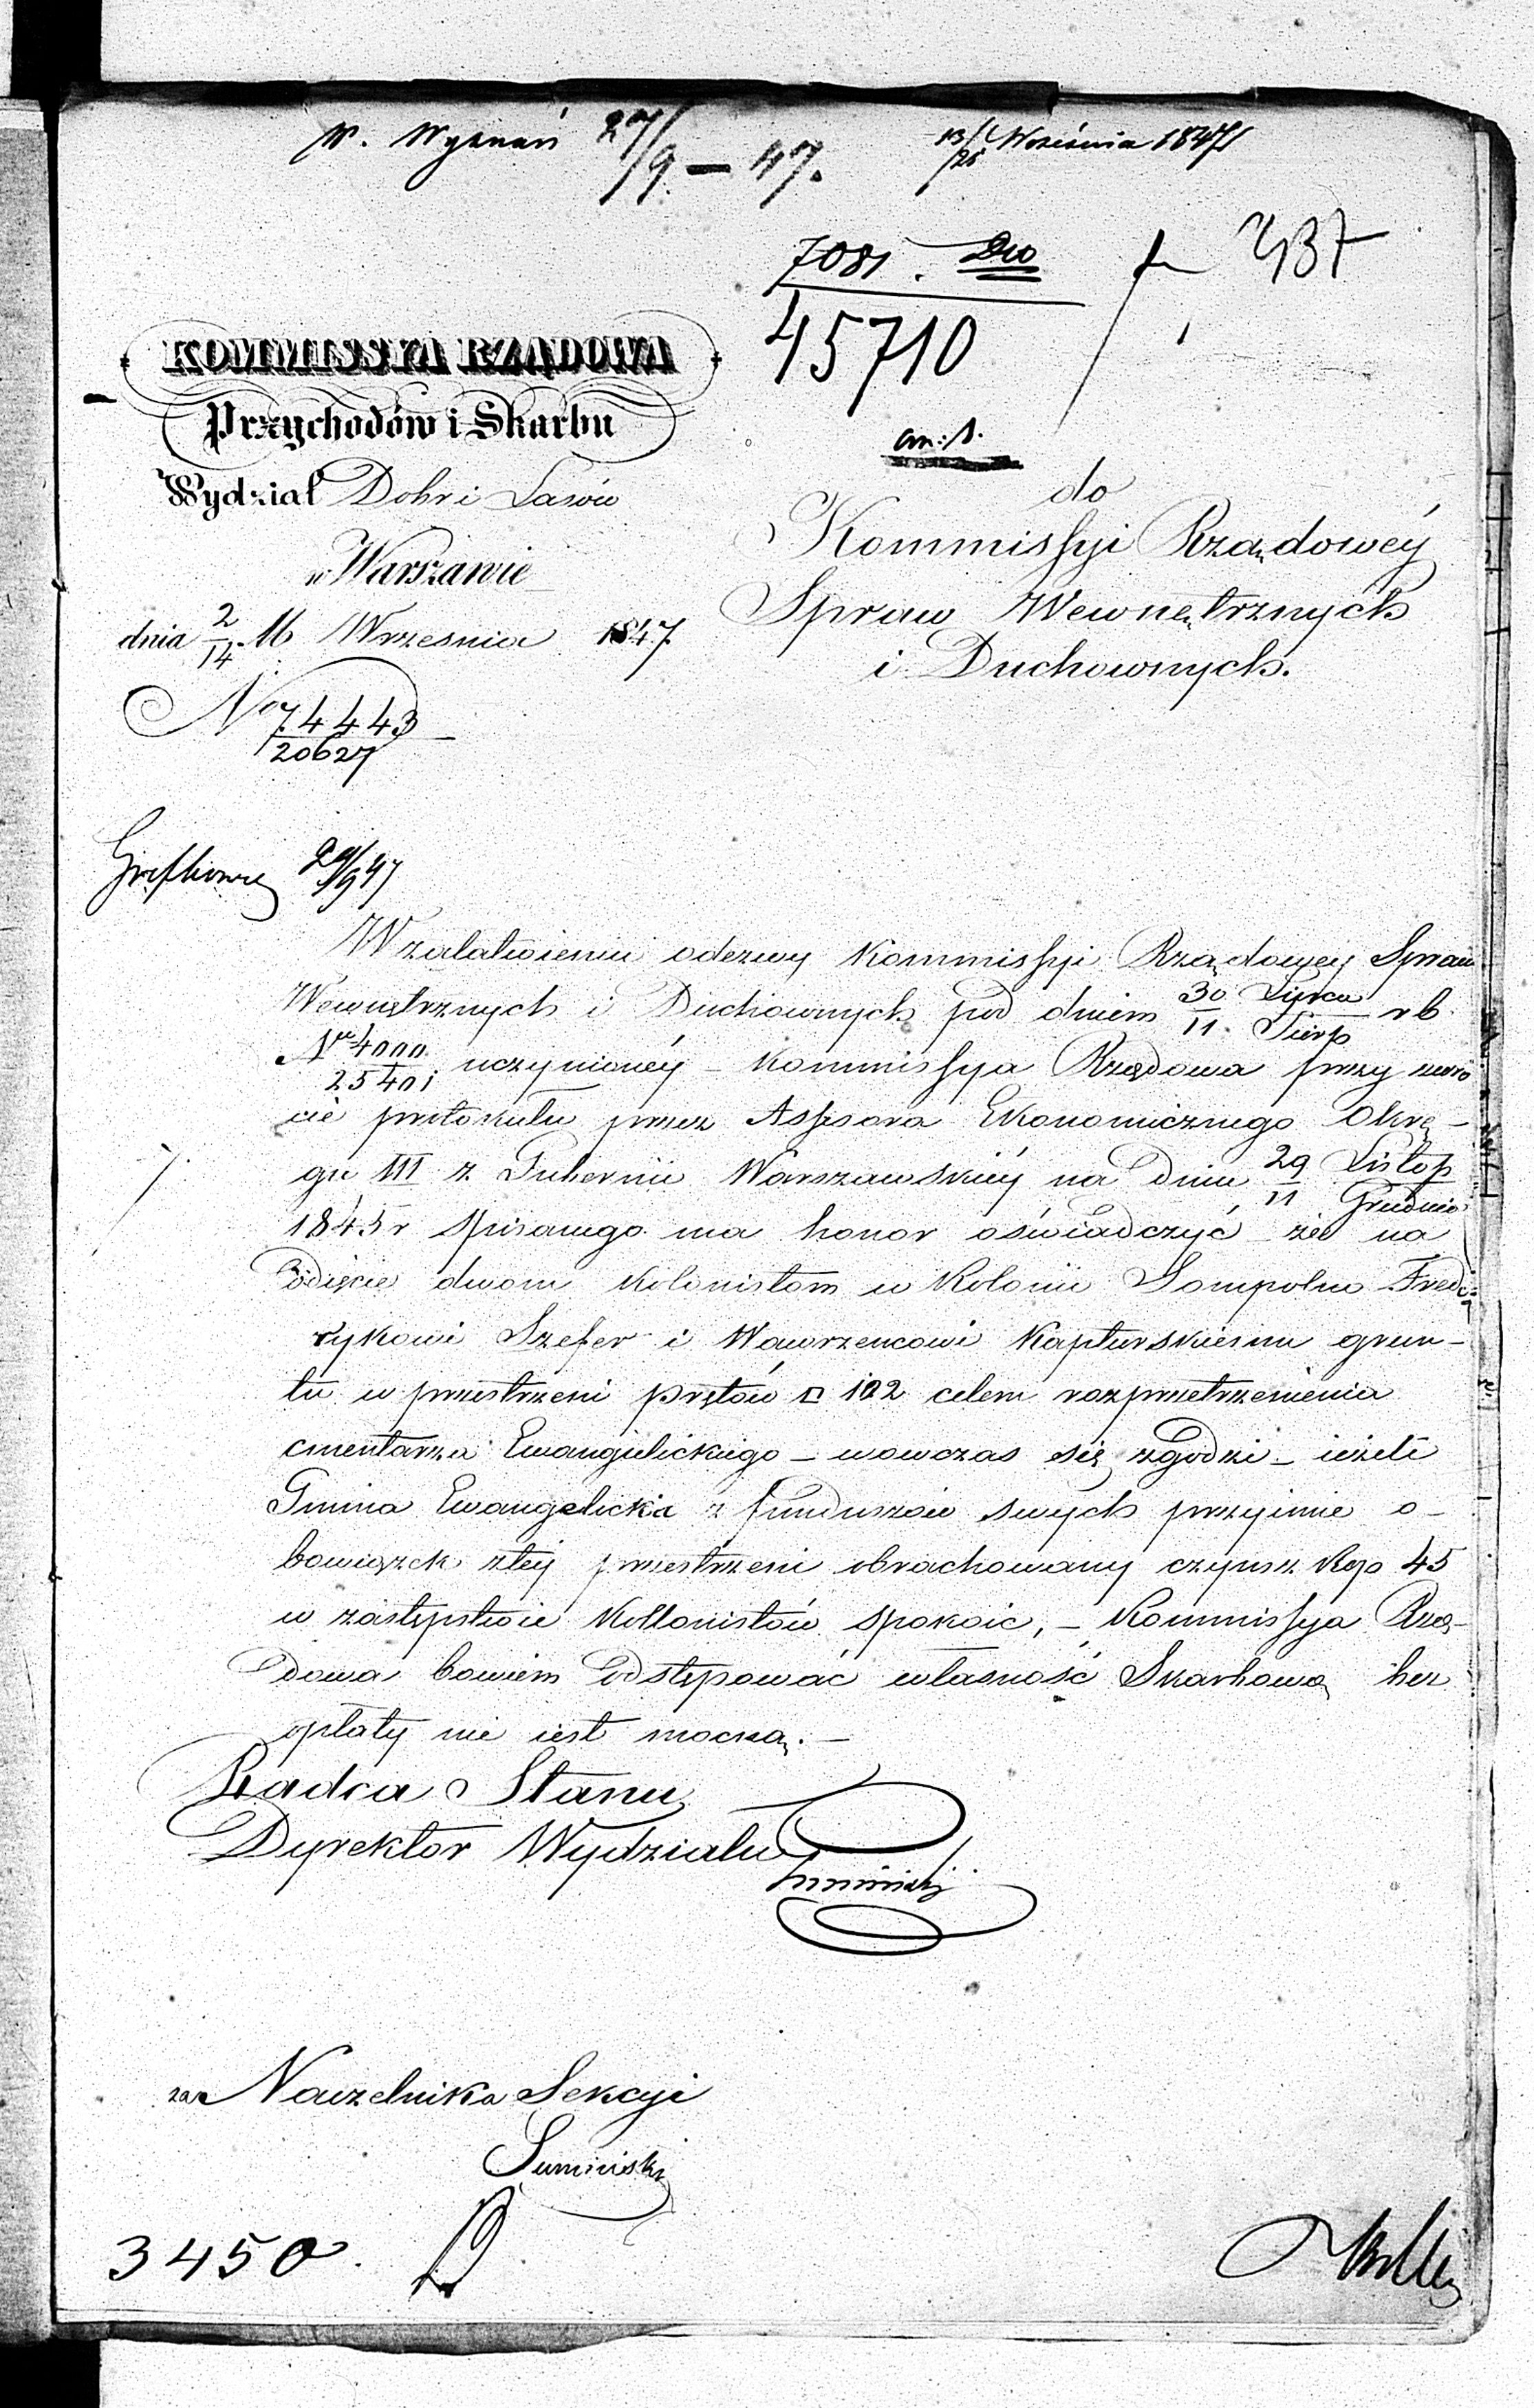 W. Wyznań 27/9 – 47.
13/25 Września 1847
7081. Dwo
45710
437
KOMMISSYA RZĄDOWA
Przychodów i Skarbu
Wydział Dóbr i Lasów
w Warszawie
dnia 2/14 M Wrzesnia 1847
No 74443/20627
do
Kommissyi Rządowéy
Spraw Wewnętrznych
i Duchownych.
29/9 47
W załatwieniu odezwy Kommissyi Rządowey Spraw
Wewnętrznych i Duchownych pod dniem 30 Lipca/11 Sierp rb
Nr 4000/25401 uczynionéy – Kommissya Rządowa przy zwro
cie protokułu przez Assesora Ekonomicznego Okrę-
gu III z Gubernii Warszawskiéy na dniu 29 Listop/11 Grudnia
1845 r spisanego ma honor oświadczyć że na
odjęcie dwom Kolonistom w Kolonii Sompolno Fryde-
rykowi Szefer i Wawrzencowi Kapturskiemu grun-
tu w przestrzeni prętów □ 102 celem rozprzetrzenienia
cmentarza Ewangielickiego – wowczas się zgodzi – ieżeli
Gmina Ewangelicka z funduszów swych przyimie o-
bowiązek ztéj przestrzeni obrachowany czynsz Kop 45
w zastępstwie Kollonistów spokoić, – Kommissya Rzą-
dowa bowiem odstępować własność Skarbową bez
opłaty nie iest mocną. –
Radca Stanu
Dyrektor Wydziału
za Naczelnika Sekcyi
Sumiński
3450.